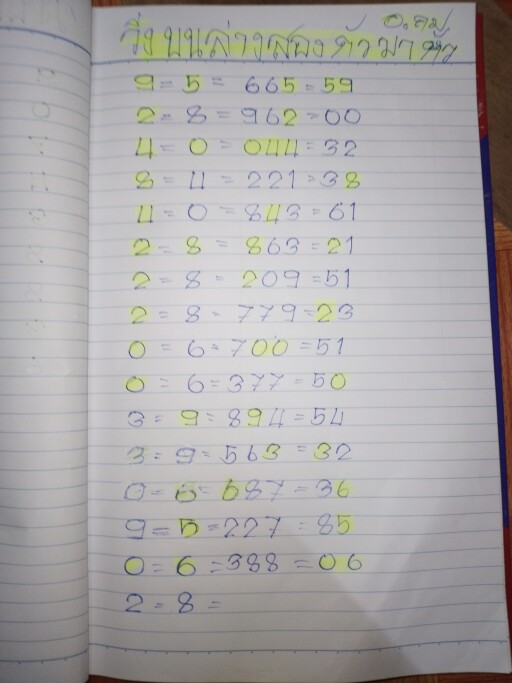 อ.คม
วิ่งบนล่างสองตัวมาตัว
9 = 5 = 665 = 59
2 = 8 = 962 = 00
4 = 0 = 044 = 32
8 = 4 = 221 = 38
4 = 0 = 843 = 61
2 = 8 = 863 = 21
2 = 8 = 209 = 51
2 = 8 = 779 = 23
0 = 6 = 700 = 51
0 = 6 = 377 = 50
3 = 9 = 894 = 54
3 = 9 = 563 = 32
0 = 6 = 687 = 36
9 = 5 = 227 = 85
0 = 6 = 388 = 06
2 = 8 =